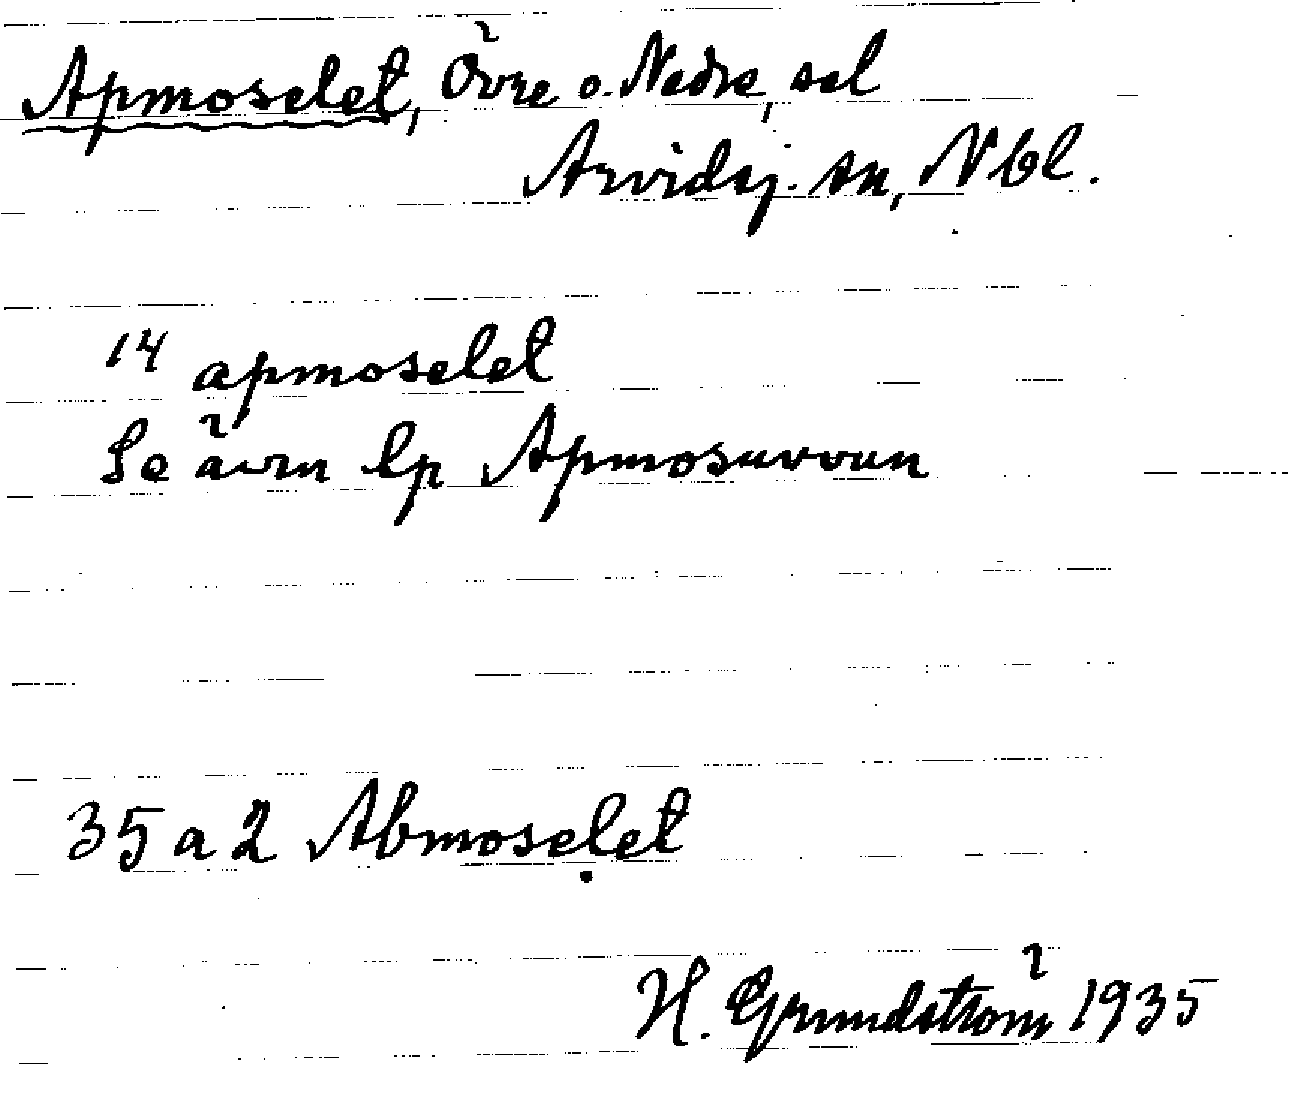 Apmoselet, Övre o. Nedre, sel
Arvidsj. sn, Nbl.
14 apmoselet
Se även lp Apmosuvvun
35 a 2 Abmoselet
H. Grundström 1935